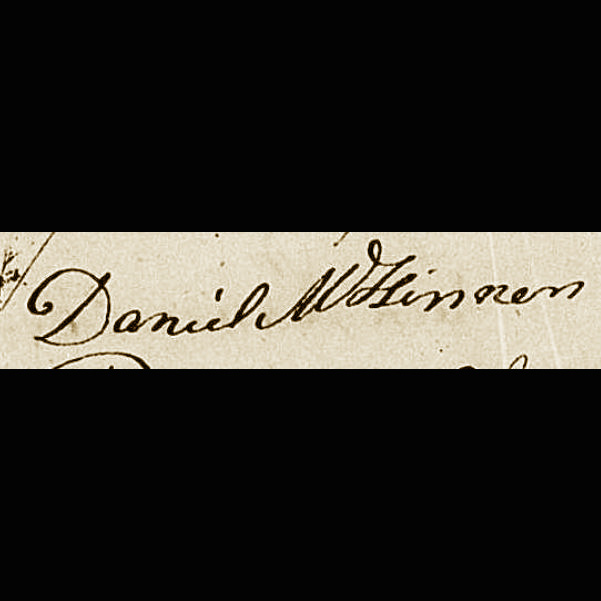 Daniel McKinnen